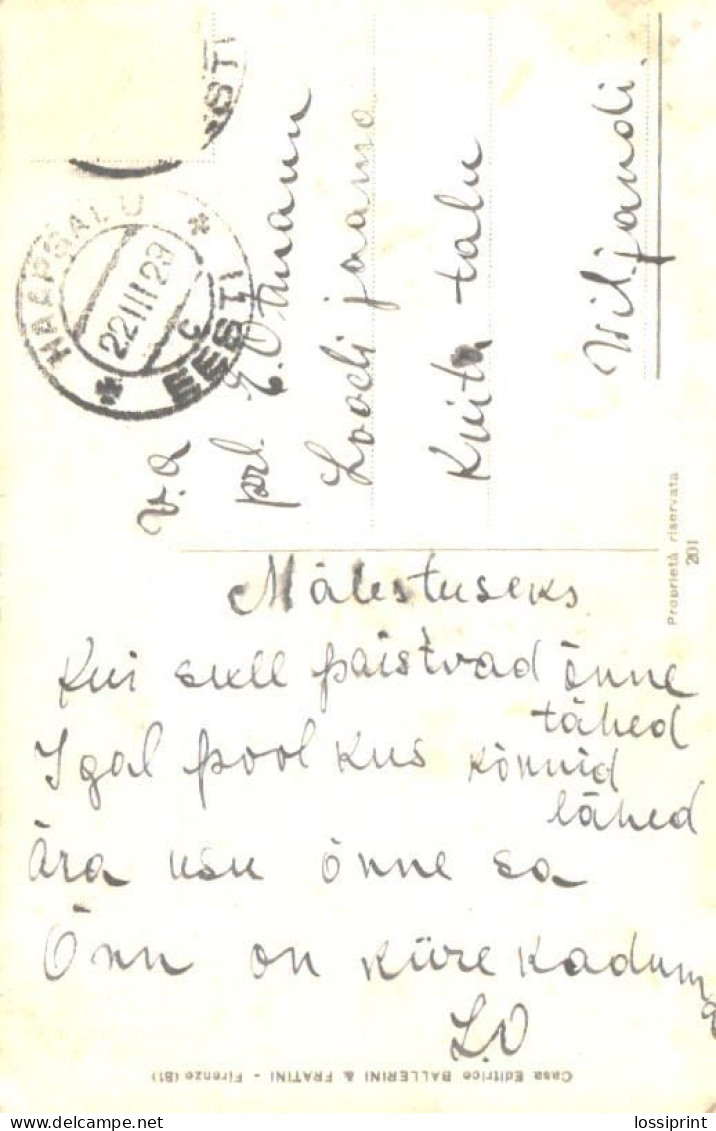 ESTI
HAAPSALU
22 III 29
C
EESTI
V.a
prl. E. Otmann
Loodi jaama
Kuita talu
Wiljandi.
Proprietà riservata
201
Mälestuseks
Kui sull paistvad õnne
tähed
Igal pool kus kõnnid
lähed
Ära usu õnne sa
Õnn on küire kaduma
L.O
Casa Editrice BALLERINI & FRATINI - Firenze (81)
lossiprint